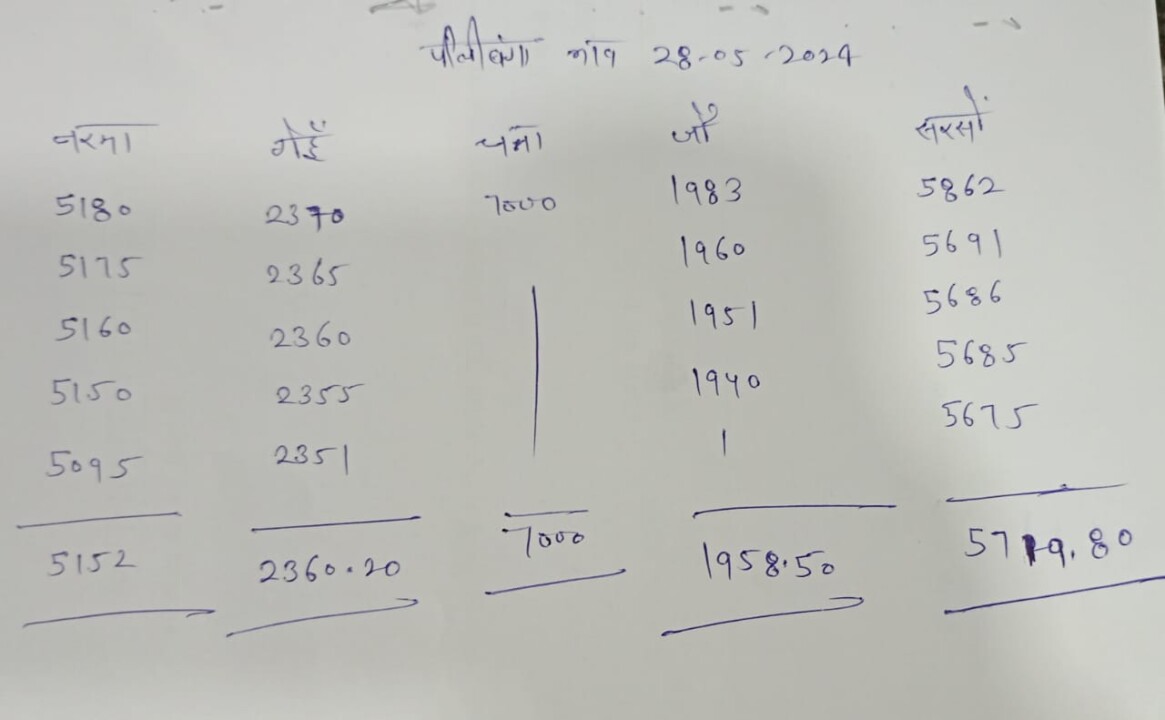 पीलीबंगा भाव 28-05-2024
नरमा गेहूँ चना जौ सरसों
5180 2370 7000 1983 5862
5175 2365 1960 5691
5160 2360 1951 5686
5150 2355 1940 5685
5095 2351 5675
5152 2360.20 7000 1958.50 5719.80